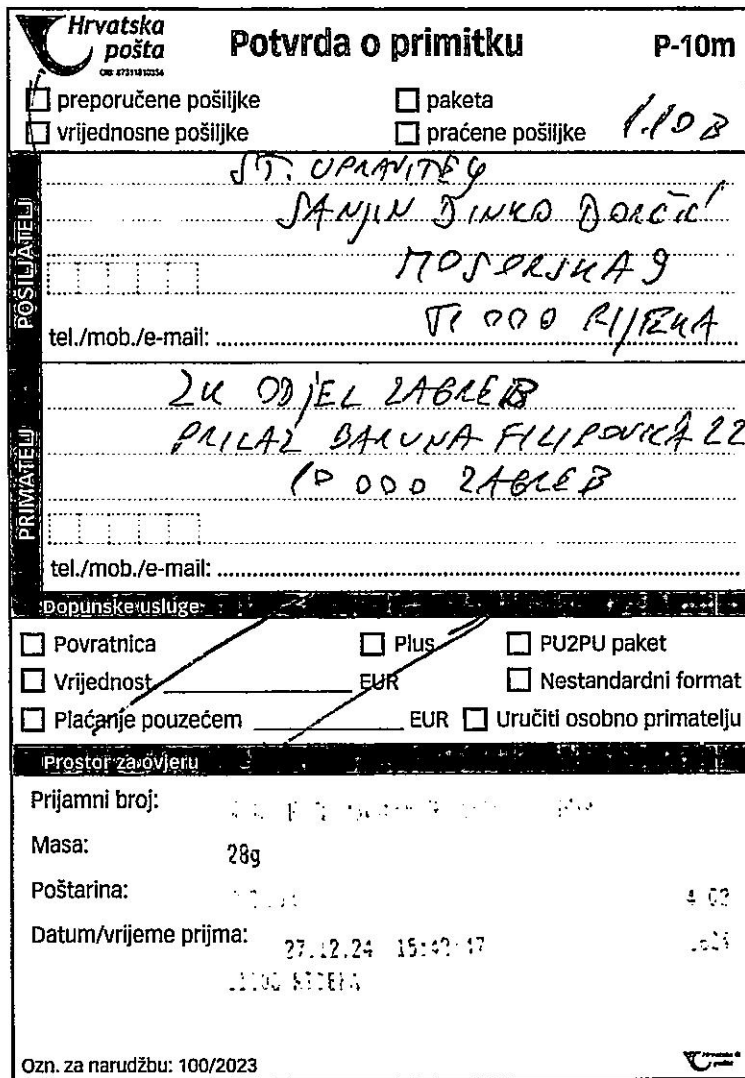 Hrvatska pošta
Potvrda o primitku
P-10m
OIB: 87311810356
preporučene pošiljke
paketa
vrijednosne pošiljke
praćene pošiljke
POŠILJATELJ
ST. UPRAVITELJ
SANJIN DINKO DORČIĆ
MOSORSKA 9
51 000 RIJEKA
tel./mob./e-mail:
PRIMATELJ
ZK ODJEL ZAGREB
PRILAZ BARUNA FILIPOVIĆA 22
10 000 ZAGREB
tel./mob./e-mail:
Dopunske usluge
Povratnica
Plus
PU2PU paket
Vrijednost EUR
Nestandardni format
Plaćanje pouzećem EUR
Uručiti osobno primatelju
Prostor za ovjeru
Prijamni broj:
Masa: 28g
Poštarina:
Datum/vrijeme prijma: 27.12.24
Ozn. za narudžbu: 100/2023